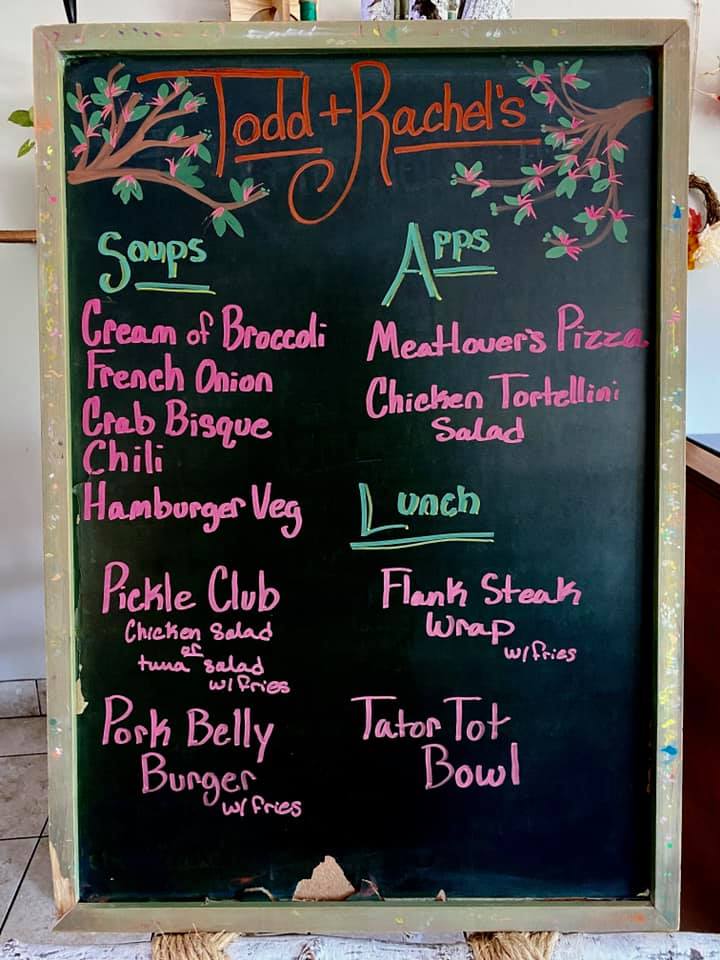 Todd + Rachel's
Soups
Cream of Broccoli
French Onion
Crab Bisque
Chili
Hamburger Veg
Apps
Meatlover's Pizza
Chicken Tortellini
Salad
Lunch
Pickle Club
Chicken Salad
or
tuna salad
w/ fries
Flank Steak
Wrap
w/ fries
Pork Belly
Burger
w/ fries
Tator Tot
Bowl